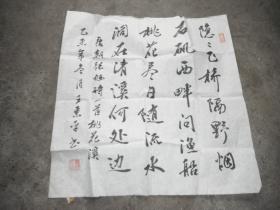 隐隐飞桥隔野烟
石矶西畔问渔船
桃花尽日随流水
洞在清溪何处边
唐朝张旭诗一首桃花溪